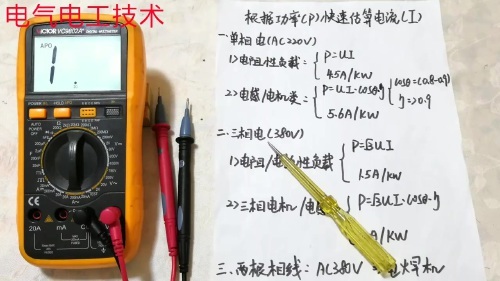 电气电工技术
VICTOR VC9802A+
APO
1
POWER
HOLD
20A
mA
COM
根据功率(P)快速估算电流(I)
一.单相电(AC220V)
1>电阻性负载:
P=UI
4.5A/KW
2>电感/电机类:
P=U·I·cosθ·η
cosθ=(0.8-0.9)
η=>0.9
5.6A/KW
二.三相电(380V)
1>电阻/电 性负载
P=√3UI
1.5A/KW
2>三相电机/电
P=√3UI·cosθ·η
A/KW
三.两根相线:AC380V 电焊机